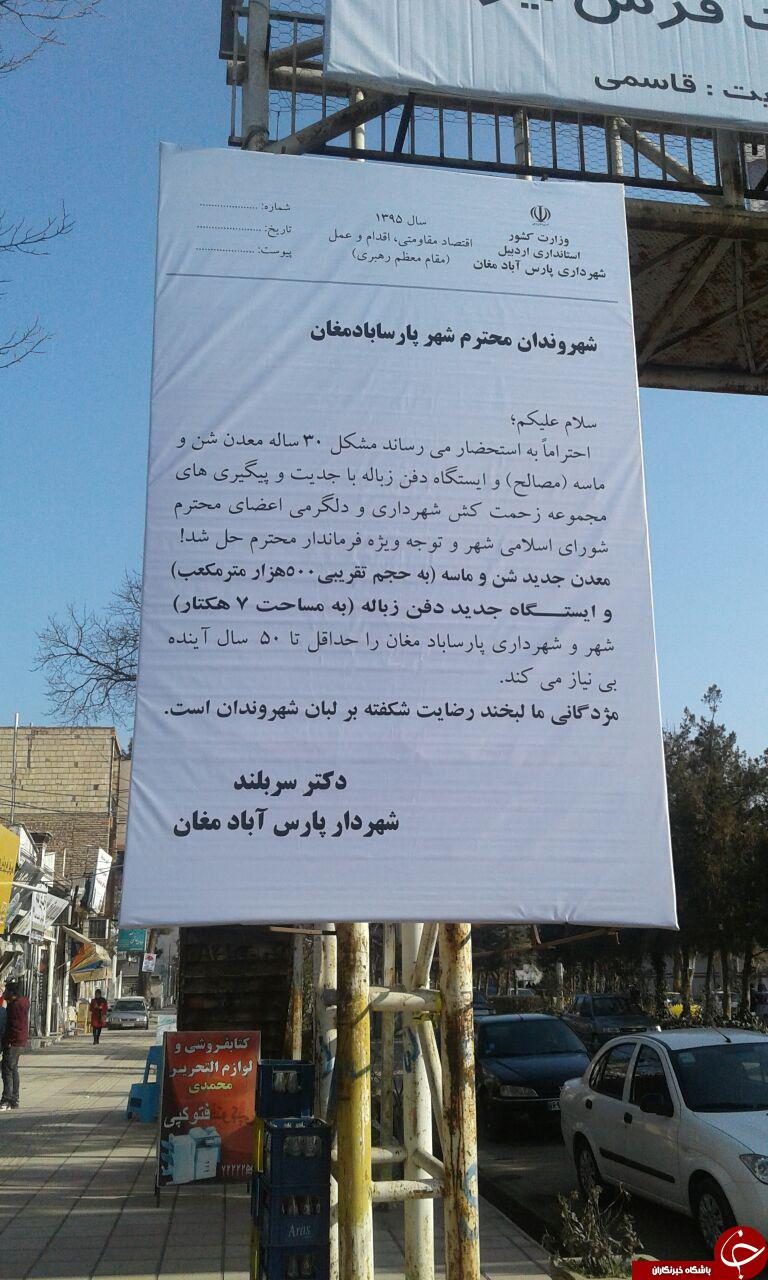 فرش
یت : قاسمی
وزارت کشور
استانداری اردبیل
شهرداری پارس آباد مغان
سال ۱۳۹۵
اقتصاد مقاومتی، اقدام و عمل
(مقام معظم رهبری)
شماره: ....................
تاریخ: ......................
پیوست: ....................
شهروندان محترم شهر پارسابادمغان
سلام علیکم؛
احتراماً به استحضار می رساند مشکل ۳۰ ساله معدن شن و
ماسه (مصالح) و ایستگاه دفن زباله با جدیت و پیگیری های
مجموعه زحمت کش شهرداری و دلگرمی اعضای محترم
شورای اسلامی شهر و توجه ویژه فرماندار محترم حل شد!
معدن جدید شن و ماسه (به حجم تقریبی۵۰۰هزار مترمکعب)
و ایستـــگاه جدید دفن زباله (به مساحت ۷ هکتار)
شهر و شهرداری پارساباد مغان را حداقل تا ۵۰ سال آینده
بی نیاز می کند.
مژدگانی ما لبخند رضایت شکفته بر لبان شهروندان است.
دکتر سربلند
شهردار پارس آباد مغان
کتابفروشی و
لوازم التحریر
محمدی
فتو کپی
Aras
باشگاه خبرنگاران